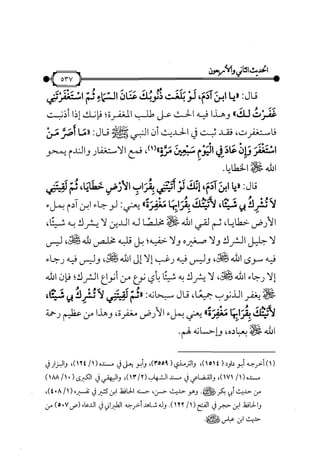 الحديث الثاني والأربعون
٥٣٧
قال: «يا ابنَ آدَمَ، لَوْ بَلَغَتْ ذُنُوبُكَ عَنَانَ السَّمَاءِ ثُمَّ اسْتَغْفَرْتَنِي
غَفَرْتُ لَكَ» وهذا فيه الحث على طلب المغفرة؛ فإنك إذا أذنبت
فاستغفرت، فقد ثبت في الحديث أن النبي ﷺ قال: «مَا أَصَرَّ مَنْ
اسْتَغْفَرَ وَإِنْ عَادَ فِي الْيَوْمِ سَبْعِينَ مَرَّةً»(١)، فمع الاستغفار والندم يمحو
الله ﷻ الخطايا.
قال: «يا ابنَ آدَمَ، إِنَّكَ لَوْ أَتَيْتَنِي بِقُرَابِ الأَرْضِ خَطَايَا، ثُمَّ لَقِيتَنِي
لَا تُشْرِكُ بِي شَيْئًا، لأَتَيْتُكَ بِقُرَابِهَا مَغْفِرَةً» يعني: لو جاء ابن آدم بملء
الأرض خطايا، ثم لقي الله ﷻ مخلصًا له الدين لا يشرك به شيئًا،
لا جليل الشرك ولا صغيره ولا خفيه؛ بل قلبه مخلص لله ﷻ، ليس
فيه سوى الله ﷻ، وليس فيه رغب إلا إلى الله ﷻ، وليس فيه رجاء
إلا رجاء الله ﷻ، لا يشرك به شيئًا بأي نوع من أنواع الشرك؛ فإن الله
ﷻ يغفر الذنوب جميعًا، قال سبحانه: «ثُمَّ لَقِيتَنِي لَا تُشْرِكُ بِي شَيْئًا،
لأَتَيْتُكَ بِقُرَابِهَا مَغْفِرَةً» يعني بملء الأرض مغفرة، وهذا من عظيم رحمة
الله ﷻ بعباده، وإحسانه لهم.
(١) أخرجه أبو داود (١٥١٤)، والترمذي (٣٥٥٩)، وأبو يعلى في مسنده (١/ ١٢٤)، والبزار في
مسنده (١/ ١٧١)، والقضاعي في مسند الشهاب (٢/ ١٣)، والبيهقي في الكبرى (١٠/ ١٨٨)
من حديث أبي بكر ﵁. وهو حديث حسن، حسنه الحافظ ابن كثير في تفسيره (١/ ٤٠٨)،
والحافظ ابن حجر في الفتح (١/ ١٢٢). وله شاهد أخرجه الطبراني في الدعاء (ص٥٠٧) من
حديث ابن عباس ﵄.